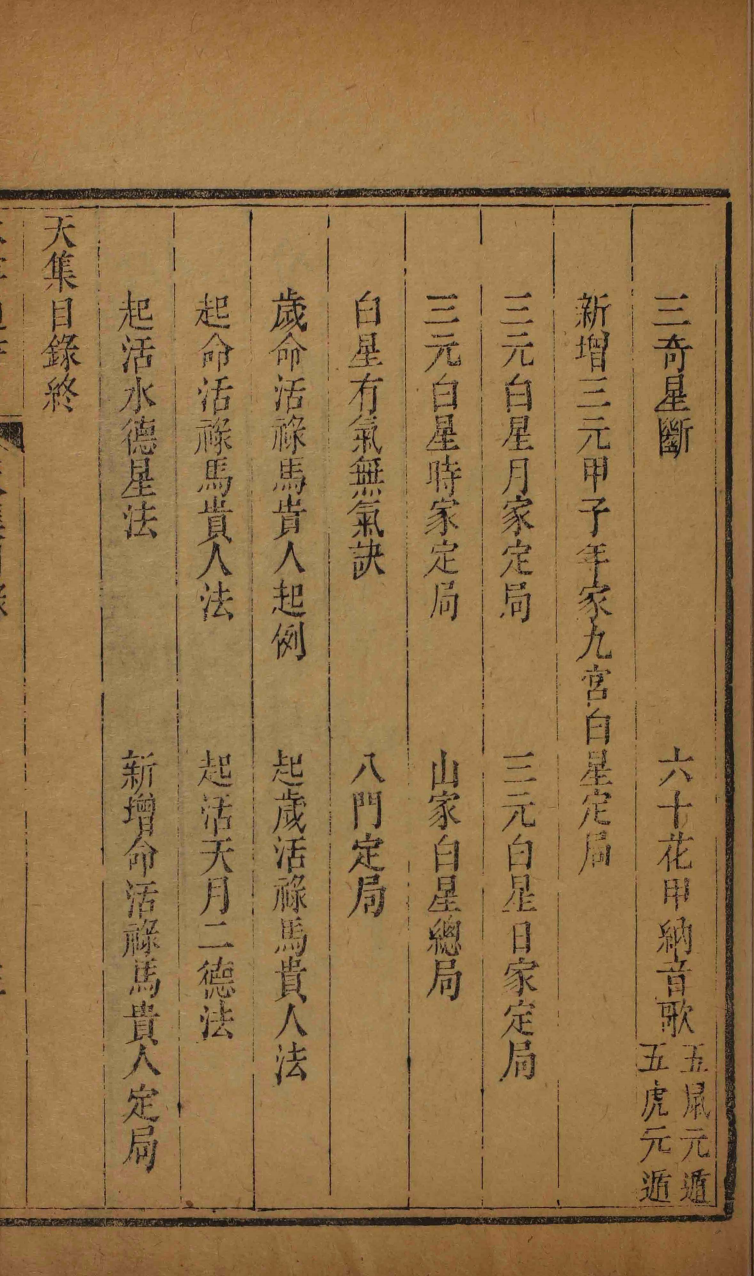 三奇星斷　六十花甲納音歌　五鼠元遁　五虎元遁
新增三元甲子年家九宮白星定局
三元白星月家定局　三元白星日家定局
三元白星時家定局　山家白星總局
白星有氣無氣訣　八門定局
歲命活祿馬貴人起例　起歲活祿馬貴人法
起命活祿馬貴人法　起活天月二德法
起活水德星法　新增命活祿馬貴人定局
天集目錄終